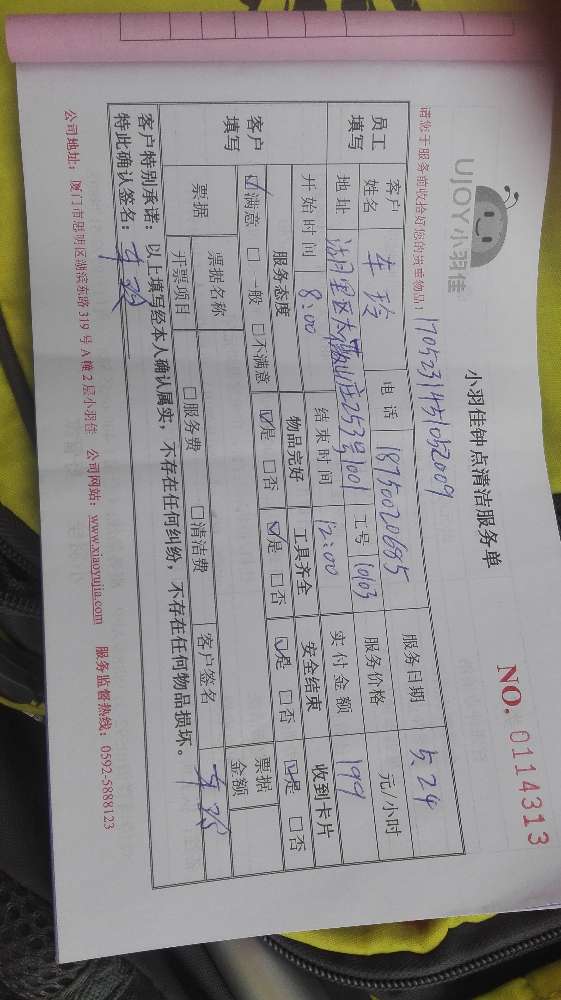 UJOY小羽佳
小羽佳钟点清洁服务单
NO. 0114313
请您于服务前收拾好您的贵重物品! 1705231451052009
员工填写 客户姓名 车玲 电话 18750020685 服务日期 5.24
地址 湖里区 山庄253号1001 工号 10103 服务价格 元/小时
开始时间 8:00 结束时间 12:00 实付金额 199
客户填写 服务态度 物品完好 工具齐全 安全结束 收到卡片
☑满意 □一般 □不满意 ☑是 □否 ☑是 □否 ☑是 □否 ☑是 □否
票据 票据名称 票据金额
开票项目 □服务费 □清洁费 客户签名
客户特别承诺:以上填写经本人确认属实,不存在任何纠纷,不存在任何物品损坏。
特此确认签名:
公司地址:厦门市思明区湖滨东路319号A幢2层小羽佳 公司网站:www.xiaoyujia.com 服务监督热线:0592-5888123